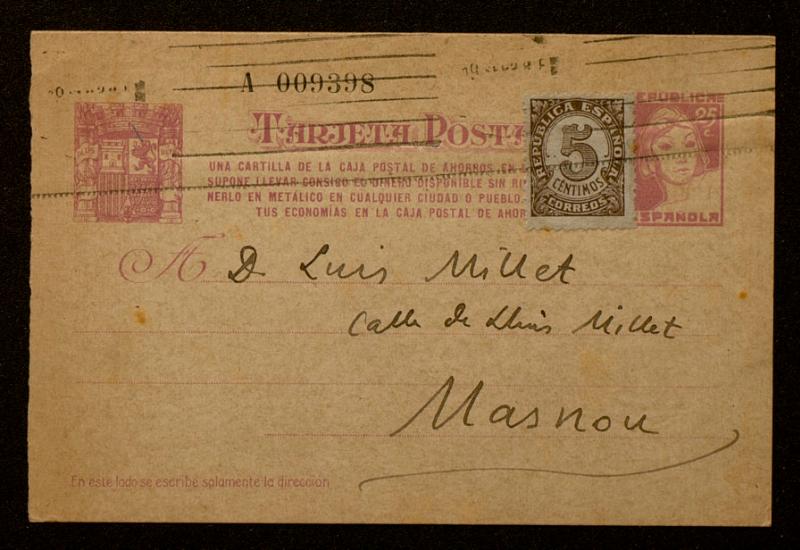 A 009398
TARJETA POSTA
UNA CARTILLA DE LA CAJA POSTAL DE AHORROS EN
SUPONE LLEVAR CONSIGO EL DINERO DISPONIBLE SIN RI
NERLO EN METÁLICO EN CUALQUIER CIUDAD O PUEBLO.
TUS ECONOMÍAS EN LA CAJA POSTAL DE AHOR
REPUBLICA ESPAÑOLA
5
CENTIMOS
CORREOS
EPUBLICA
25
SPAÑOLA
A D. Luis Millet
Calle de Lluis Millet
Masnou
En este lado se escribe solamente la dirección